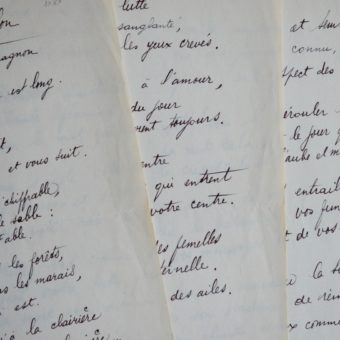 lon
agnon
est long.
t,
et vous suit.
chiffrable,
le sable :
table.
les forêts,
les marais,
est.
à la clairière
lutte
sanglante,
les yeux crevés.
à l'amour,
du jour
rent toujours.
entre
qui entrent
votre centre.
des femelles
ternelle.
des ailes.
et
connu,
spect des
érouler
le jour
l'aube et
entrait
vos
t de vos
la
de
ux comme